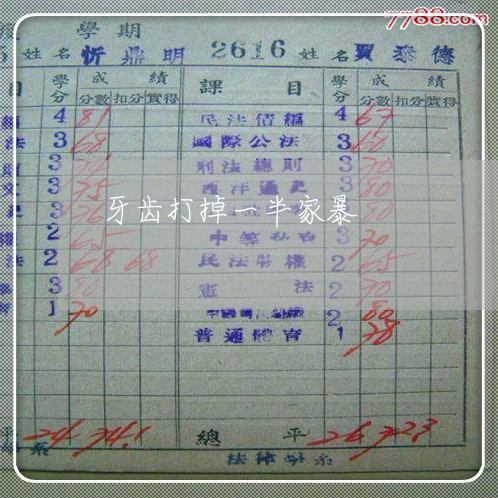 7788.com
學期
姓名 忻鼎明 2616 姓名 賈泰德
目 學分 成績 課目 學分 成績
分數 扣分 實得 分數 扣分 實得
4 81 民法債編 4 67
法 3 68 國際公法 3 60
3 刑法總則 3 70
3 75 西洋通史 3 80
3 80
牙齿打掉一半家暴
權 2 65 3 70
法 2 68 68 民法物權 2 65
3 80 憲法 2 70
1 70 2 80
普通體育 1 78
平 24 74.1 總平 26 72.3
系 法律學系